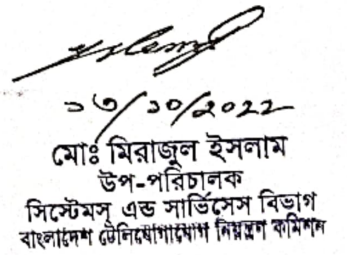 ১৩/১০/২০২২
মোঃ মিরাজুল ইসলাম
উপ-পরিচালক
সিস্টেমস্ এন্ড সার্ভিসেস বিভাগ
বাংলাদেশ টেলিযোগাযোগ নিয়ন্ত্রণ কমিশন